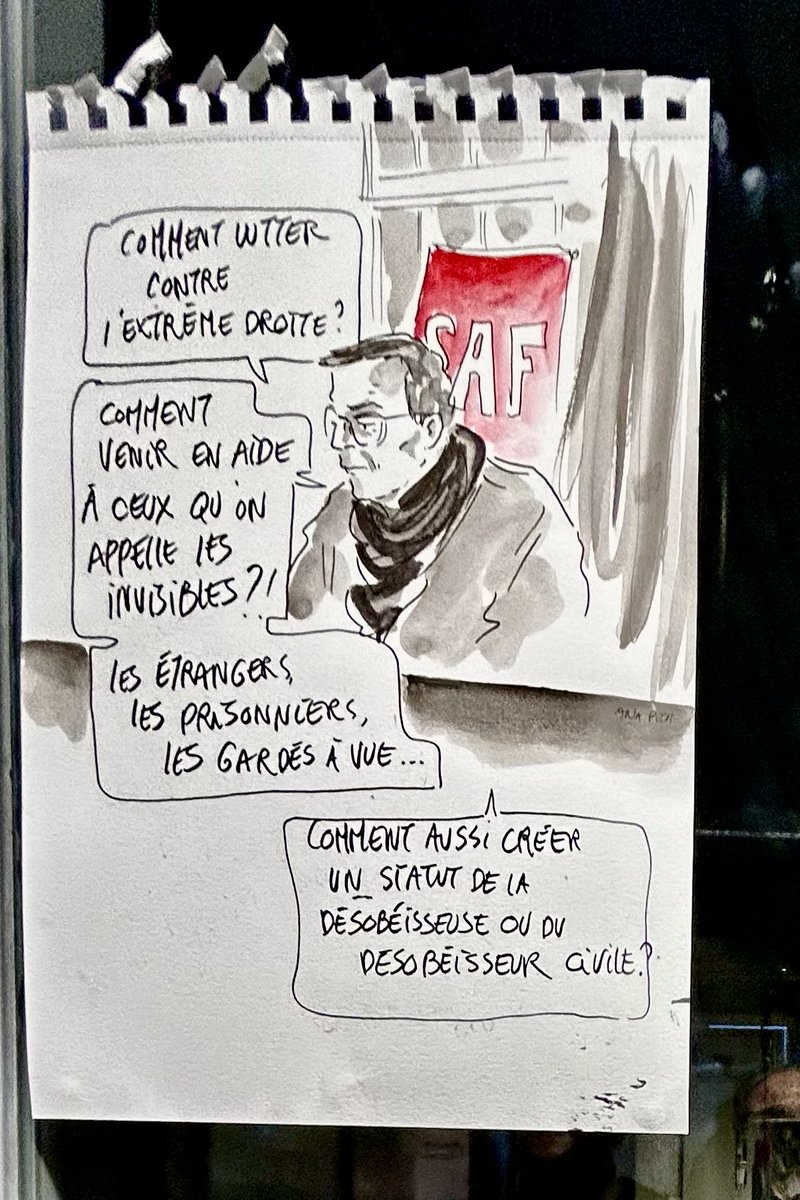 COMMENT LUTTER
CONTRE
l'EXTRÊME DROITE?
SAF
COMMENT
VENIR EN AIDE
À CEUX QU'ON
APPELLE LES
INVISIBLES?!
LES ÉTRANGERS,
LES PRISONNIERS,
LES GARDÉS À VUE...
COMMENT AUSSI CRÉER
UN STATUT DE LA
DÉSOBÉISSEUSE OU DU
DESOBÉISSEUR CIVILE?
ANA